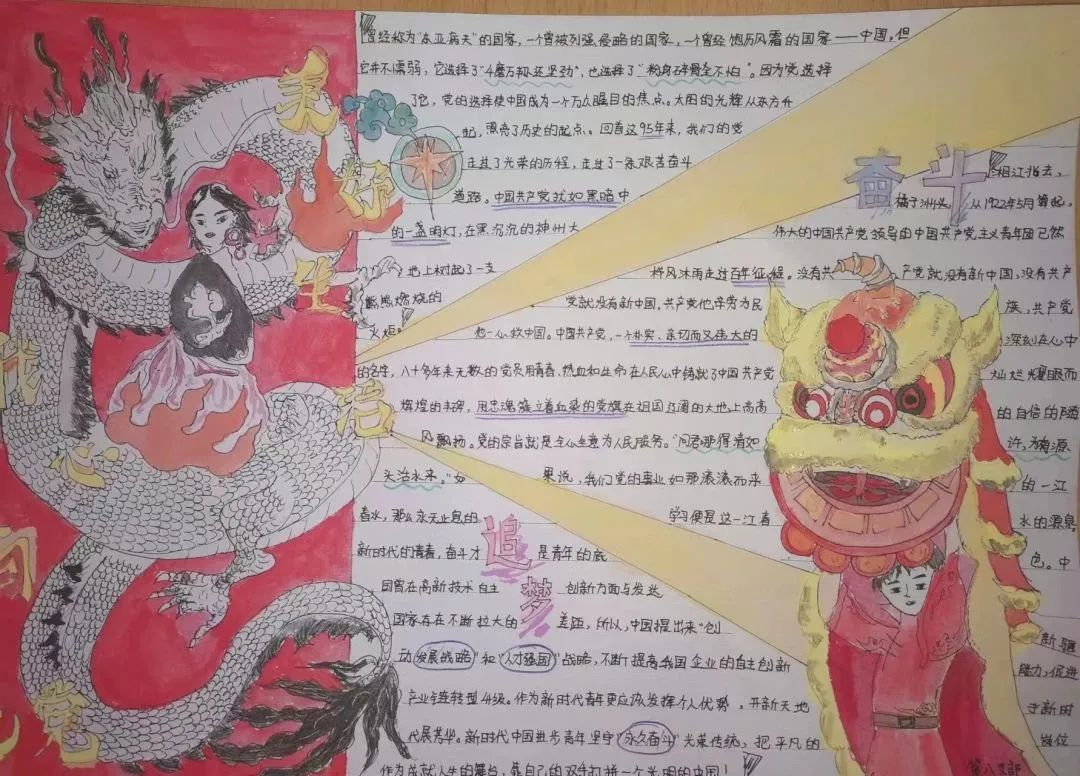 曾经称为"东亚病夫"的国家，一个曾被列强侵略的国家，一个曾经饱历风霜的国家——中国，但
它并不懦弱，它选择了"千磨万韧还坚劲"，也选择了"粉身碎骨全不怕"。因为党选择
了它，党的选择使中国成为一个万众瞩目的焦点。太阳的光辉从东方升
起，照亮了历史的起点。回首这95年来，我们的党
走过了光荣的历程，走过了一条艰苦奋斗
道路。中国共产党犹如黑暗中
的一盏明灯，在黑沉沉的神州大
地上树起了一支
熊熊燃烧的
火炬。
美好生活
我心向党
奋斗
湘江指去，
橘子洲头，从1922年5月算起，
伟大的中国共产党领导由中国共产党主义青年团已然
栉风沐雨走过百年征程。没有共产党就没有新中国，没有共产
党就没有新中国，共产党他辛劳为民族，共产党
他一心救中国。中国共产党，一个朴实、亲切而又伟大的深刻在心中
的名字，八十多年来无数的党员用青春、热血和生命在人民心中铸就了中国共产党灿烂耀眼而
辉煌的丰碑，用忠魂簇立着血染的党旗在祖国辽阔的大地上高高的自信的随
风飘扬。党的宗旨就是全心全意为人民服务。"问君那得清如许，为有源
头活水来。"如果说，我们党的事业如那滚滚而来的一江
春水，那么永无止息的学习便是这一江春水的源泉
追梦
新时代的青春，奋斗才是青年的底色。中
国曾在高新技术自主创新方面与发达
国家存在不断拉大的差距，所以，中国提出来"创新驱
动发展战略"和"人才强国"战略，不断提高我国企业的自主创新能力，促进
产业链转型升级。作为新时代青年更应该发挥个人优势，开新天地于新时
代展芳华。新时代中国进步青年坚守"永久奋斗"光荣传统，把平凡的岗位
作为成就人生的舞台，靠自己的双手打拼一个光明的中国！
第八支部